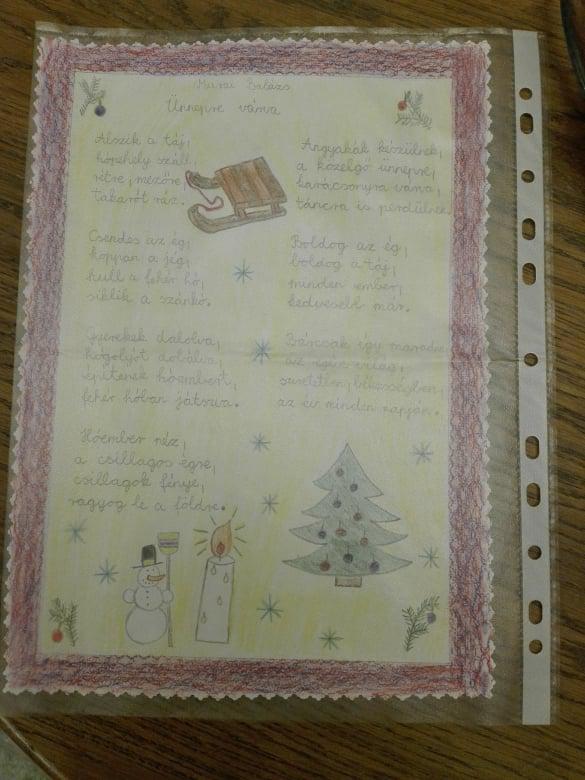 Murai Balázs
Ünnepre várva
Alszik a táj,
hópehely száll,
rétre, mezőre,
takarót ráz.
Csendes az ég,
koppan a jég,
hull a fehér hó,
siklik a szánkó.
Gyerekek dalolva,
hógolyót dobálva,
építenek hóembert,
fehér hóban játszva.
Hóember néz,
a csillagos égre,
csillagok fénye,
ragyog le a földre.
Angyalkák készülnek,
a közelgő ünnepre,
karácsonyra várva,
táncra is perdülnek.
Boldog az ég,
boldog a táj,
minden ember,
kedvesebb már.
Bárcsak így maradna
az egész világ,
szeretetben, békességben,
az év minden napján.